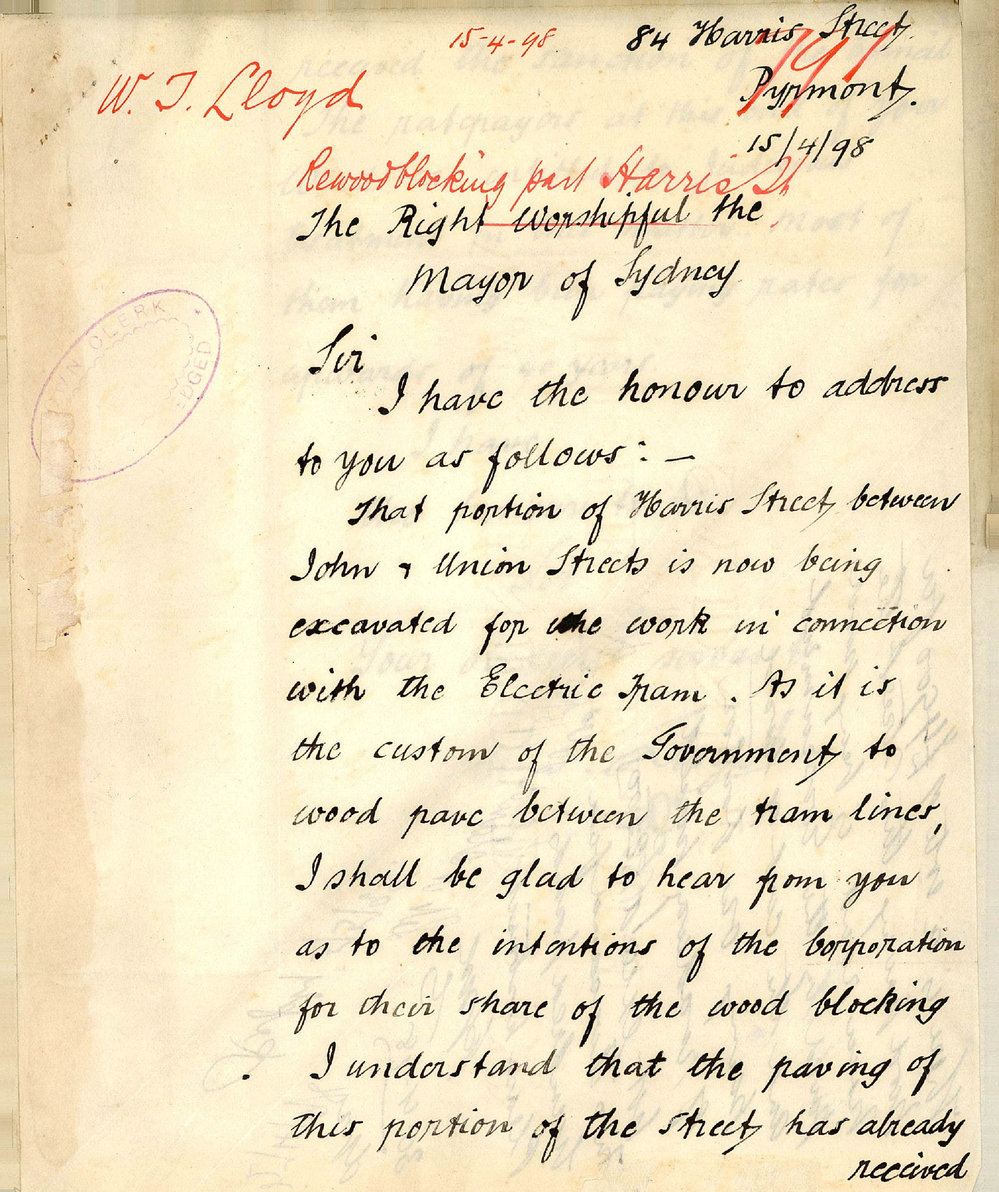 15-4-98
84 Harris Street.
W. J. Lloyd
Pyrmont.
15/4/98
Rewoodblocking part Harris St
The Right Worshipful the
Mayor of Sydney
CLERK
Sir
I have the honour to address
to you as follows: —
That portion of Harris Street between
John & Union Streets is now being
excavated for the work in connection
with the Electric Tram. As it is
the custom of the Government to
wood pave between the tram lines,
I shall be glad to hear from you
as to the intentions of the Corporation
for their share of the wood blocking
I understand that the paving of
this portion of the street has already
received